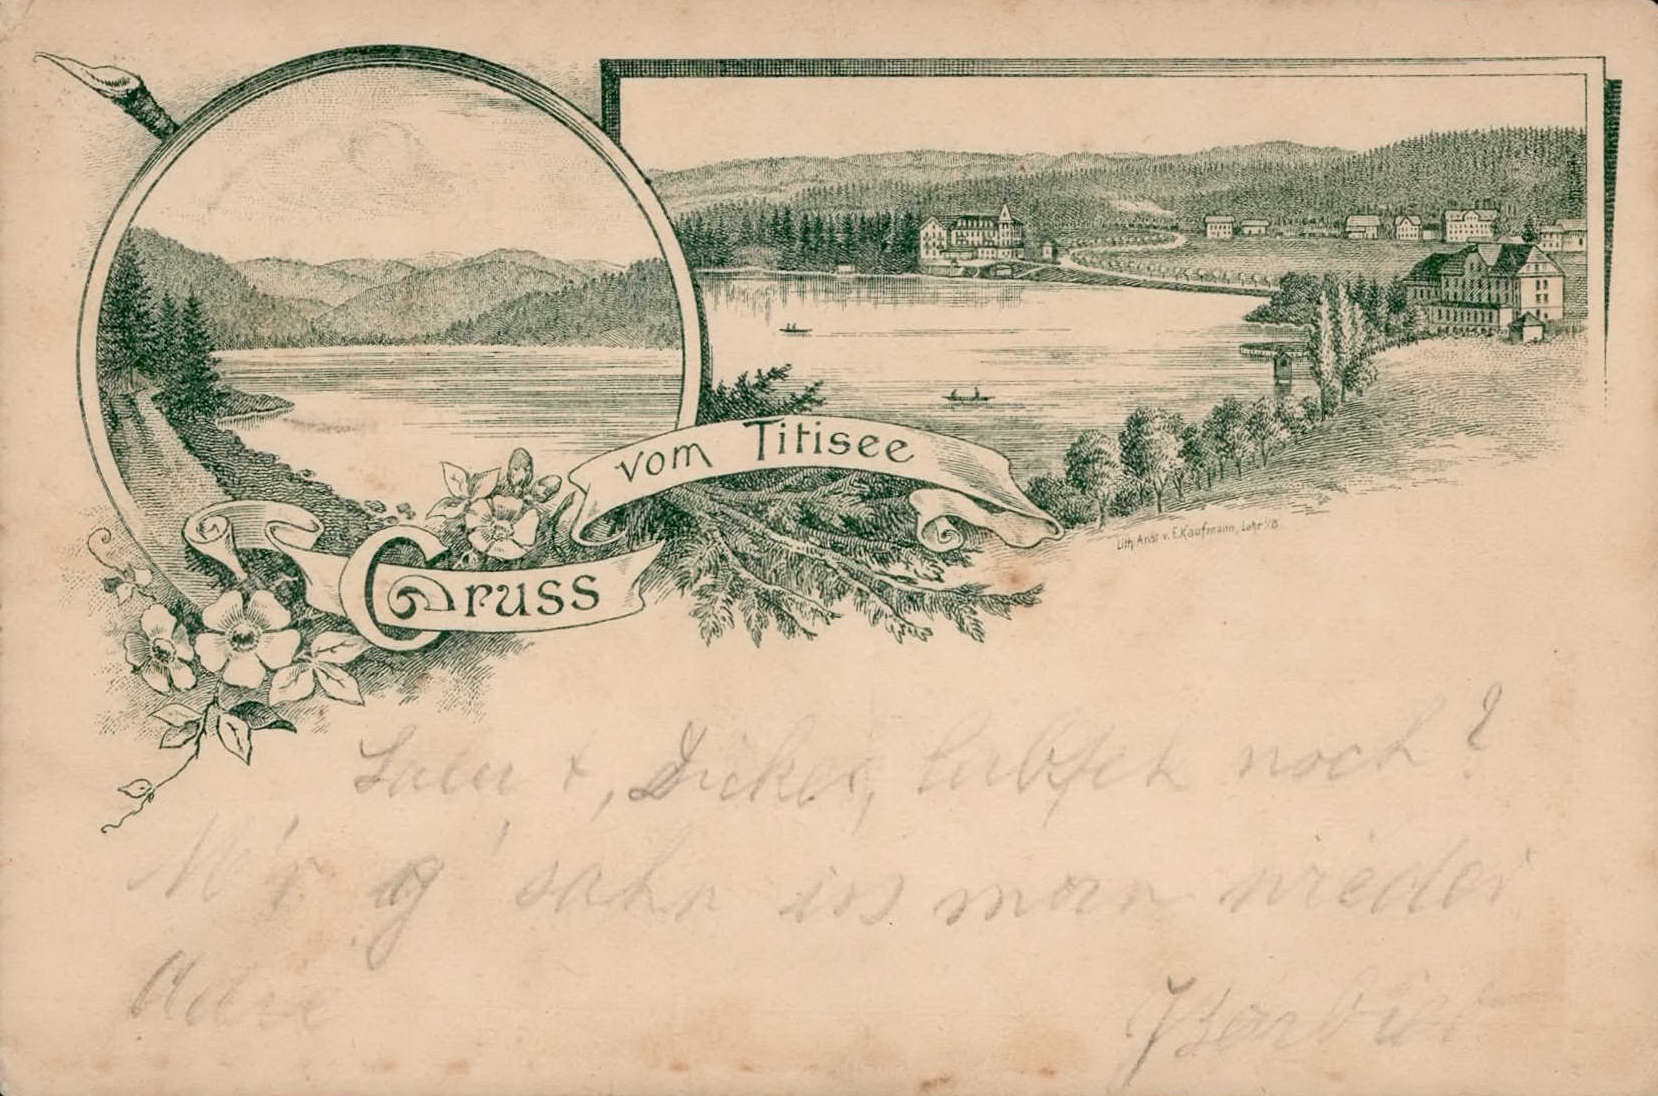 Gruss
vom Titisee
Lith. Anst v. E. Kaufmann, Lahr i/B.
+, Dicker, noch?
M'r g'sahn ins man wieder
Adie